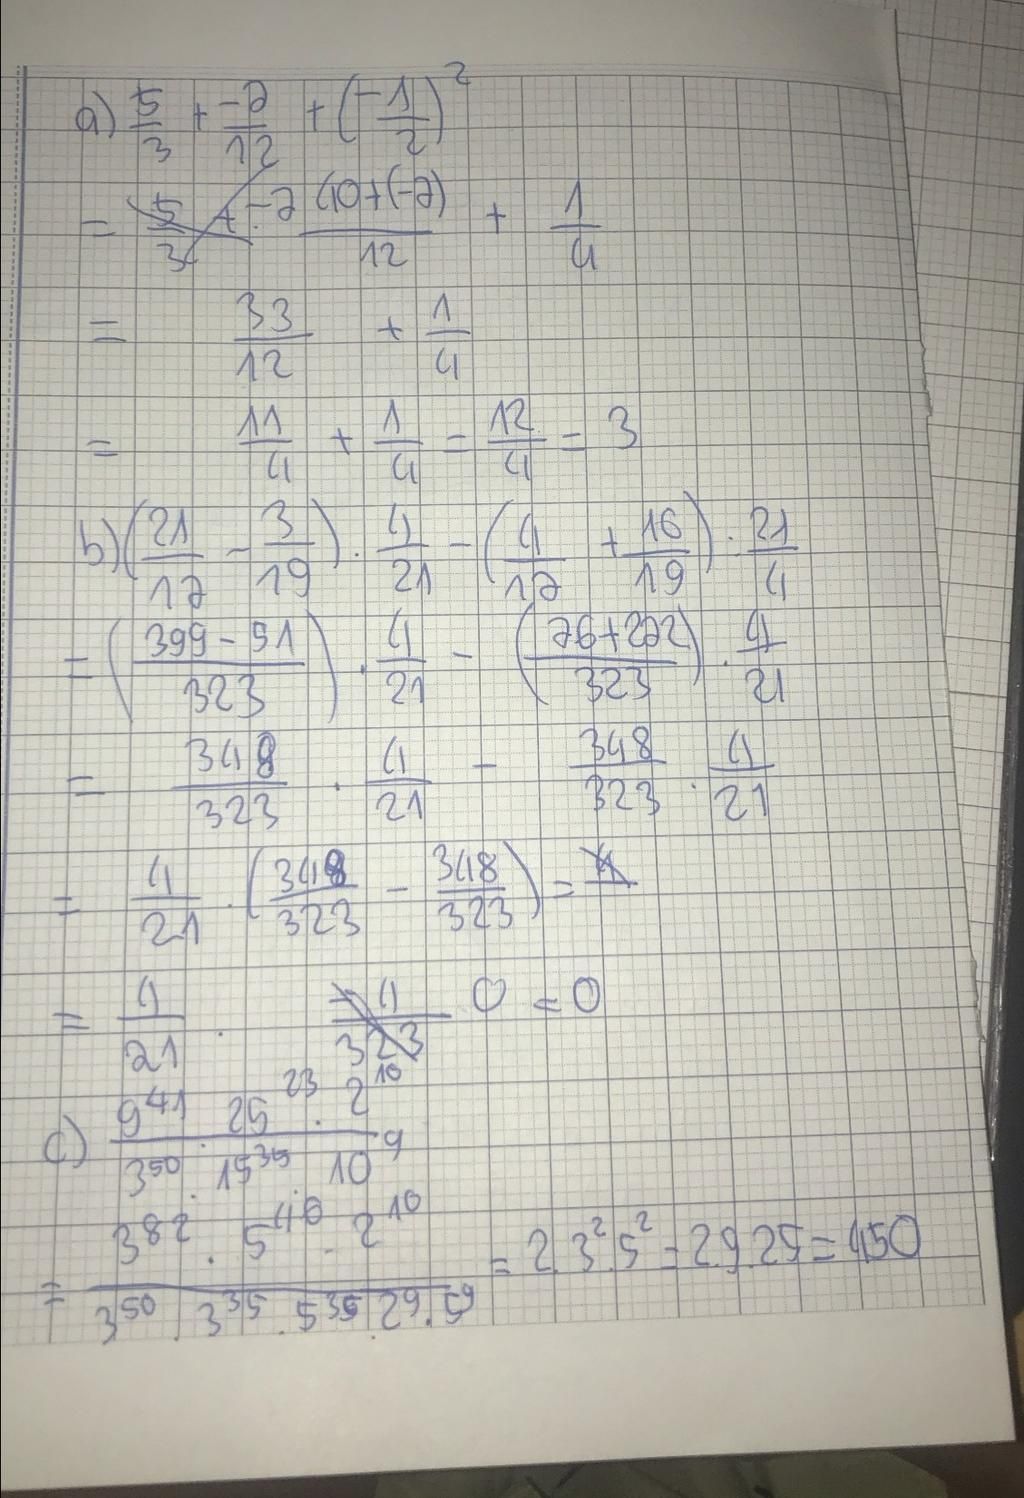 a) 5/3 + -7/12 + (-1/2)²
= (40+(-7))/12 + 1/4
= 33/12 + 1/4
= 11/4 + 1/4 = 12/4 = 3
b) (21/17 - 3/19) · 4/21 - (4/17 + 16/19) · 21/4
= ((399-51)/323) · 4/21 - ((76+272)/323) · 4/21
= 348/323 · 4/21 - 348/323 · 4/21
= 4/21 · (348/323 - 348/323) =
= 4/21 · 0 = 0
c) (9^41 · 25^23 · 2^10)/(3^50 · 15^35 · 10^9)
= (3^82 · 5^46 · 2^10)/(3^50 · 3^35 · 5^35 · 2^9 · 5^9) = 2 · 3² 5² = 2 9 25 = 450